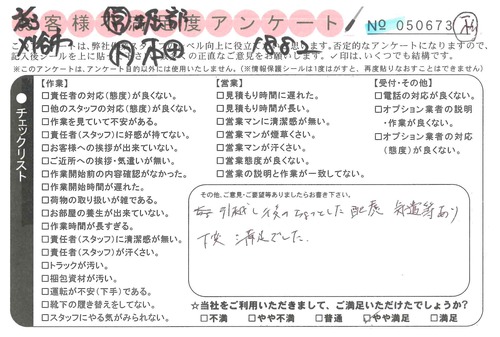 お客様満足度アンケート
№ 050673
記入後シールを上に貼
の正直なご意見をお願いします。✓印は、いくつでも結構です。
※このアンケートは、アンケート目的以外には使用いたしません。(※情報保護シールは1度はがすと、再度貼りなおすことはできません)
チェックリスト
【作業】
□責任者の対応(態度)が良くない。
□他のスタッフの対応(態度)が良くない。
□作業を見ていて不安がある。
□責任者(スタッフ)に好感が持てない。
□お客様への挨拶が出来ていない。
□ご近所への挨拶・気遣いが無い。
□作業開始前の内容確認がなかった。
□作業開始時間が遅れた。
□荷物の取り扱いが雑である。
□お部屋の養生が出来ていない。
□作業時間が長すぎる。
□責任者(スタッフ)に清潔感が無い。
□責任者(スタッフ)が汗くさい。
□トラックが汚い。
□梱包資材が汚い。
□運転が不安(下手)である。
□靴下の履き替えをしてない。
□スタッフにやる気がみられない。
【営業】
□見積もり時間に遅れた。
□見積もり時間が長い。
□営業マンに清潔感が無い。
□営業マンが煙草くさい。
□営業マンが汗くさい。
□営業態度が良くない。
□営業の説明と作業が一致してない。
【受付・その他】
□電話の対応が良くない。
□オプション業者の説明
・作業が良くない。
□オプション業者の対応
(態度)が良くない。
その他、ご意見・ご要望等ありましたらお書き下さい。
引越し後のちょっとした配慮
満足でした.
☆当社をご利用いただきまして、ご満足いただけたでしょうか?
□不満 □やや不満 □普通 □やや満足 □満足